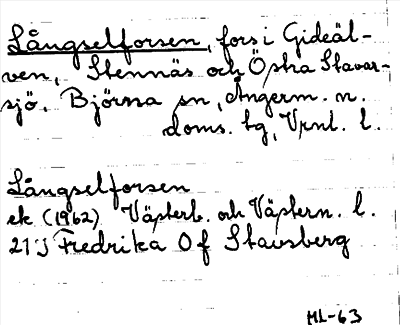 Långselforsen, fors i Gideäl-
ven, Stennäs och Östra Stavar-
sjö. Björna sn, Ångerm. n.
doms. tg, Vrnl. l.
Långselforsen
ek (1962) Västerb. och Västern. l.
21 J Fredrika O f Stavsberg
ML-63